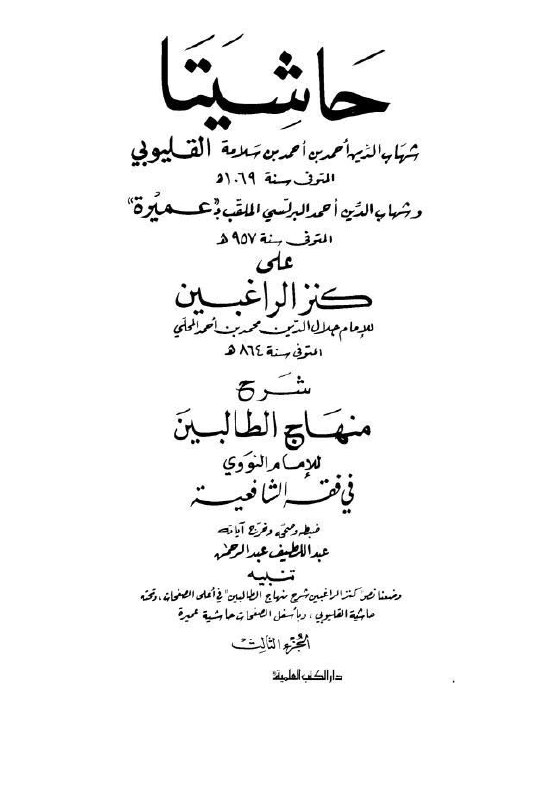 حَاشِيَتَا
شهاب الدين أحمد بن أحمد بن سلامة القليوبي
المتوفى سنة ١٠٦٩ هـ
وشهاب الدين أحمد البرلسي الملقب بـ"عميرة"
المتوفى سنة ٩٥٧ هـ
على
كنز الراغبين
للإمام جلال الدين محمد بن أحمد المحلي
المتوفى سنة ٨٦٤ هـ
شرح
منهاج الطالبين
للإمام النووي
في فقه الشافعية
ضبطه وصححه وخرج آياته
عبد اللطيف عبد الرحمن
تنبيه
وضعنا نص "كنز الراغبين شرح منهاج الطالبين" في أعلى الصفحات، وتحته
حاشية القليوبي، وبأسفل الصفحات حاشية عميرة
الجزء الثالث
دار الكتب العلمية